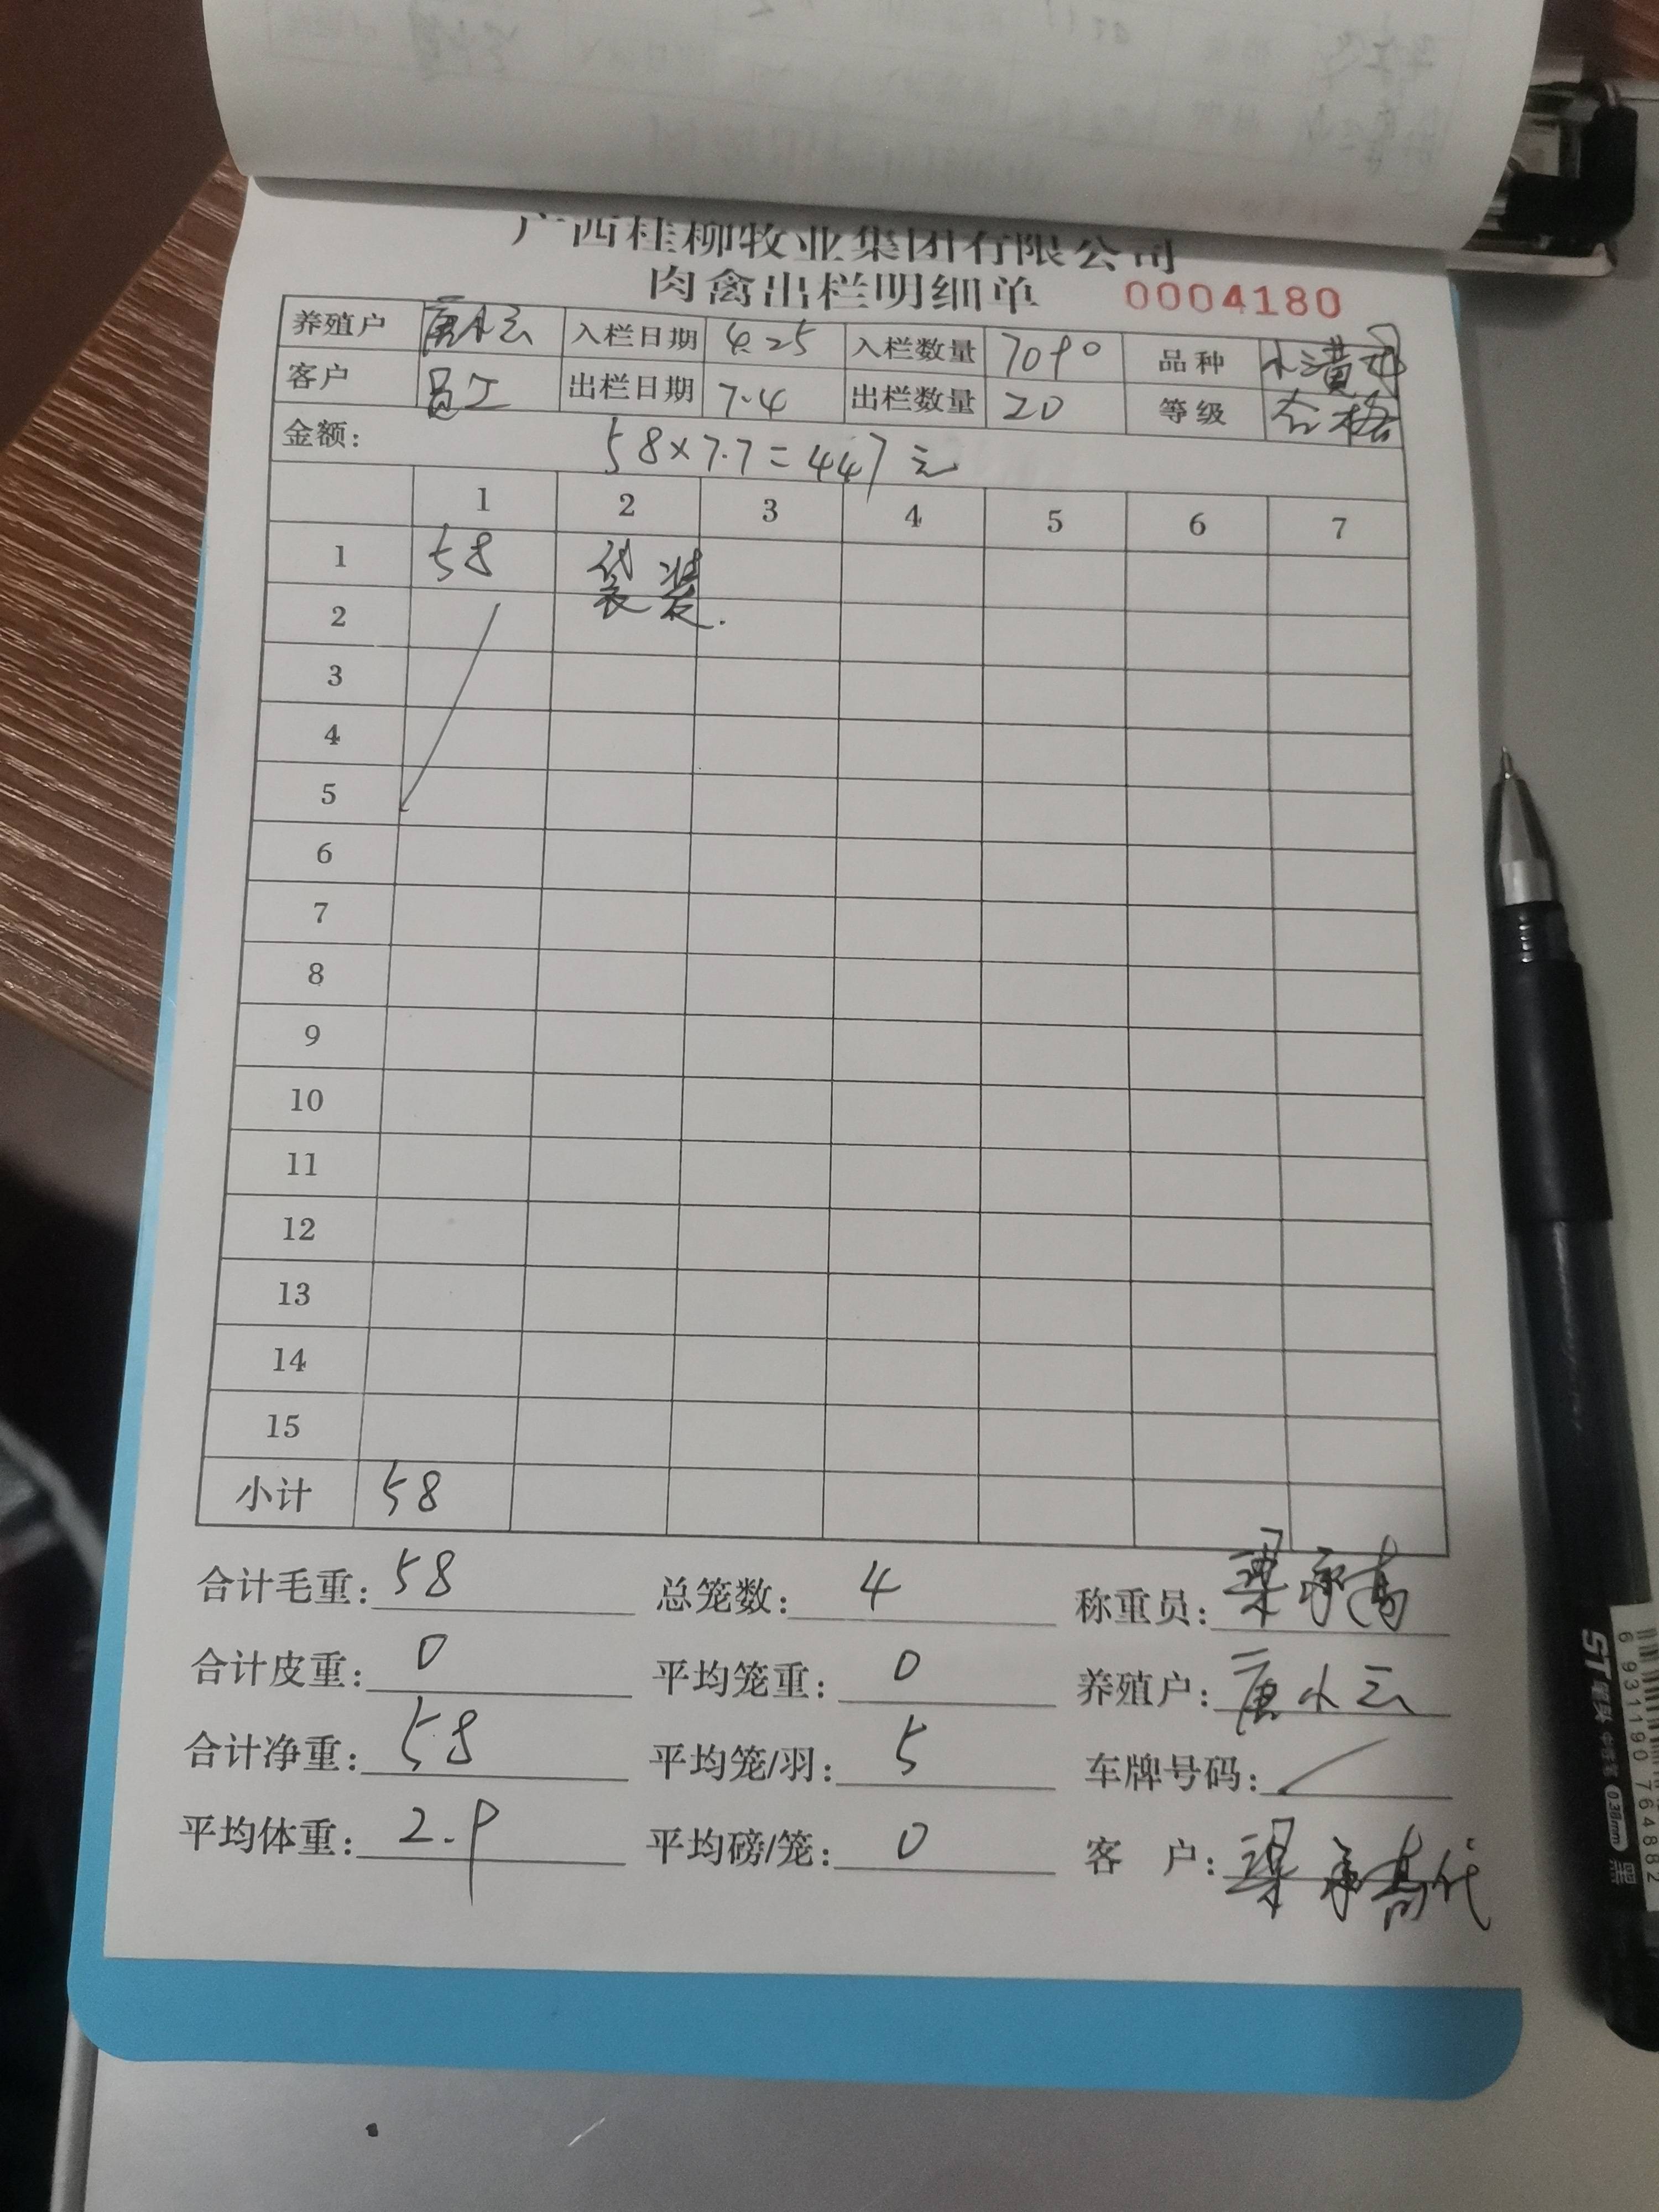 广西桂柳牧业集团有限公司
肉禽出栏明细单 0004180
养殖户 唐小云 入栏日期 4.25 入栏数量 7090 品种
客户 员工 出栏日期 7.4 出栏数量 20 等级 合格
金额: 58×7.7=447元
1 2 3 4 5 6 7
1 58 袋装.
2
3
4
5
6
7
8
9
10
11
12
13
14
15
小计 58
合计毛重: 58 总笼数: 4 称重员: 梁承高
合计皮重: 0 平均笼重: 0 养殖户: 唐小云
合计净重: 58 平均笼/羽: 5 车牌号码: /
平均体重: 2.9 平均磅/笼: 0 客 户: 梁承高代
ST 0.38mm 黑
6 931190 764882